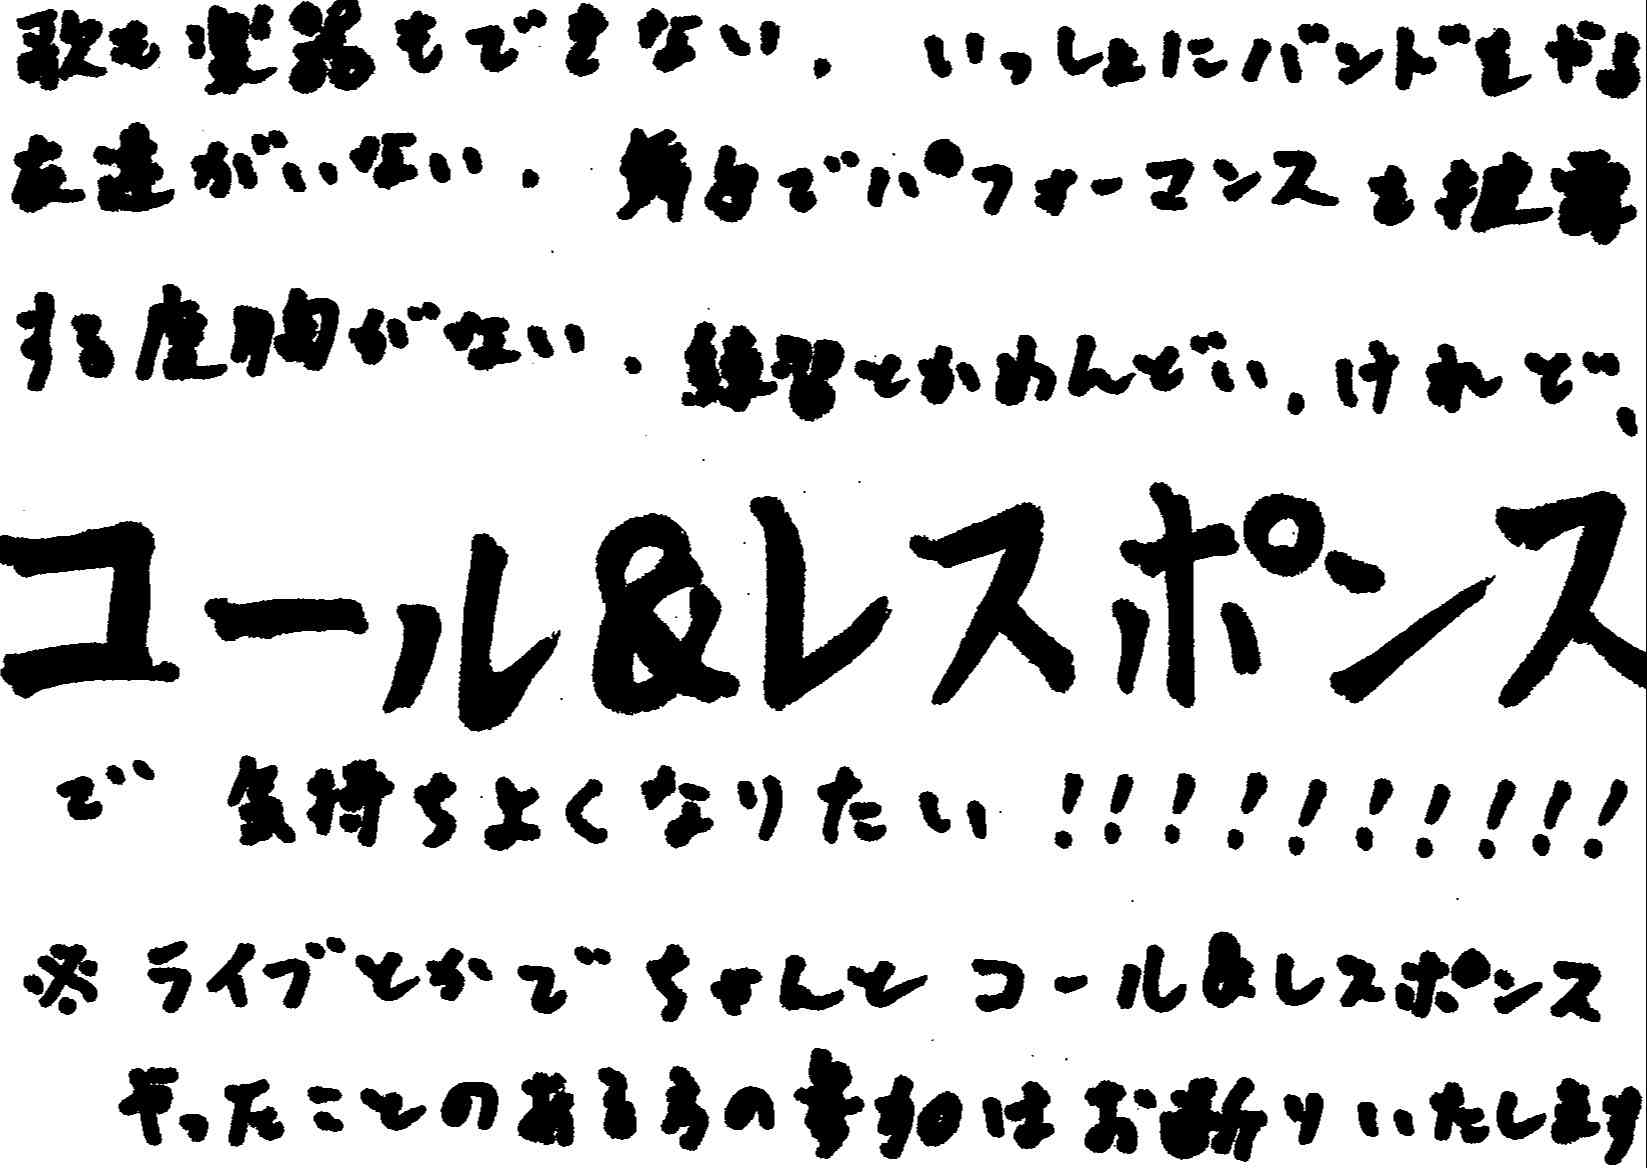 歌も楽器もできない.いっしょにバンドをやる
友達がいない.舞台でパフォーマンスを披露
する度胸がない.練習とかめんどい.けれど、
コール&レスポンス
で 気持ちよくなりたい!!!!!!!!!!
※ライブとかでちゃんとコール&レスポンス
やったことのある方の参加はお断りいたします